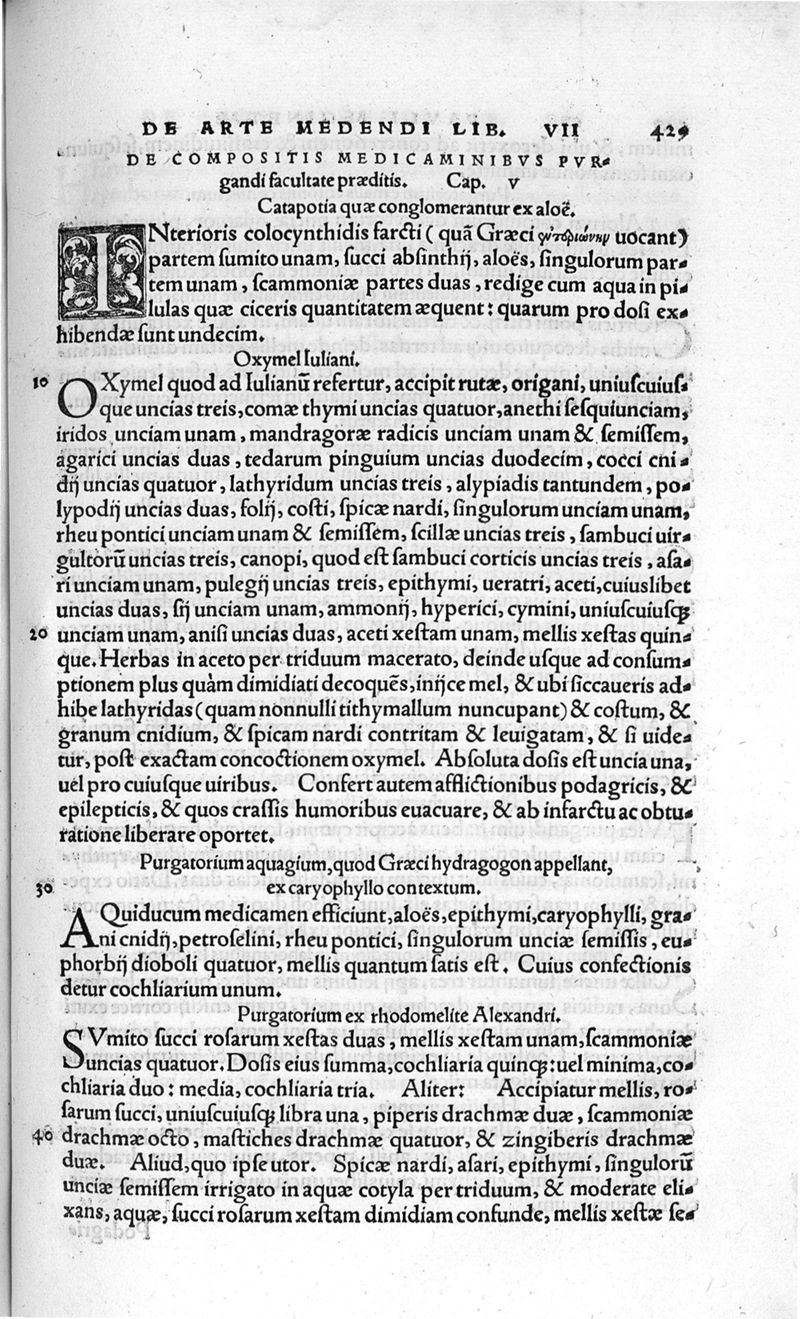 DE ARTE MEDENDI LIB. VII 429
DE COMPOSITIS MEDICAMINIBVS PVR-
gandi facultate præditis. Cap. V
Catapotia quæ conglomerantur ex aloë.
INterioris colocynthidis farcti (quã Græci uocant)
partem sumito unam, succi absinthij, aloës, singulorum par-
tem unam, scammoniæ partes duas, redige cum aqua in pi-
lulas quæ ciceris quantitatem æquent: quarum pro dosi ex-
hibendæ sunt undecim.
Oxymel Iuliani.
10 OXymel quod ad Iulianũ refertur, accipit rutæ, origani, uniuscuius-
que uncias treis, comæ thymi uncias quatuor, anethi sesquiunciam,
iridos unciam unam, mandragoræ radicis unciam unam & semissem,
agarici uncias duas, tedarum pinguium uncias duodecim, cocci cni-
dij uncias quatuor, lathyridum uncias treis, alypiadis tantundem, po-
lypodij uncias duas, folij, costi, spicæ nardi, singulorum unciam unam,
rheu pontici unciam unam & semissem, scillæ uncias treis, sambuci uir-
gultorũ uncias treis, canopi, quod est sambuci corticis uncias treis, asa-
ri unciam unam, pulegij uncias treis, epithymi, ueratri, aceti, cuiuslibet
uncias duas, sij unciam unam, ammonij, hyperici, cymini, uniuscuiusq;
20 unciam unam, anisi uncias duas, aceti xestam unam, mellis xestas quin-
que. Herbas in aceto per triduum macerato, deinde usque ad consum-
ptionem plus quàm dimidiati decoquẽs, inijce mel, & ubi siccaueris ad-
hibe lathyridas (quam nonnulli tithymallum nuncupant) & costum, &
granum cnidium, & spicam nardi contritam & leuigatam, & si uide-
tur, post exactam concoctionem oxymel. Absoluta dosis est uncia una,
uel pro cuiusque uiribus. Confert autem afflictionibus podagricis, &
epilepticis, & quos crassis humoribus euacuare, & ab infarctu ac obtu-
ratione liberare oportet.
Purgatorium aquagium, quod Græci hydragogon appellant,
30 ex caryophyllo contextum.
AQuiducum medicamen efficiunt, aloës, epithymi, caryophylli, gra-
ni cnidij, petroselini, rheu pontici, singulorum unciæ semissis, eu-
phorbij dioboli quatuor, mellis quantum satis est. Cuius confectionis
detur cochliarium unum.
Purgatorium ex rhodomelite Alexandri.
SVmito succi rosarum xestas duas, mellis xestam unam, scammoniæ
uncias quatuor. Dosis eius summa, cochliaria quinq;: uel minima, co-
chliaria duo: media, cochliaria tria. Aliter: Accipiatur mellis, ro-
sarum succi, uniuscuiusq; libra una, piperis drachmæ duæ, scammoniæ
40 drachmæ octo, mastiches drachmæ quatuor, & zingiberis drachmæ
duæ. Aliud, quo ipse utor. Spicæ nardi, asari, epithymi, singulorũ
unciæ semissem irrigato in aquæ cotyla per triduum, & moderate eli-
xans, aquæ, succi rosarum xestam dimidiam confunde, mellis xestæ se-